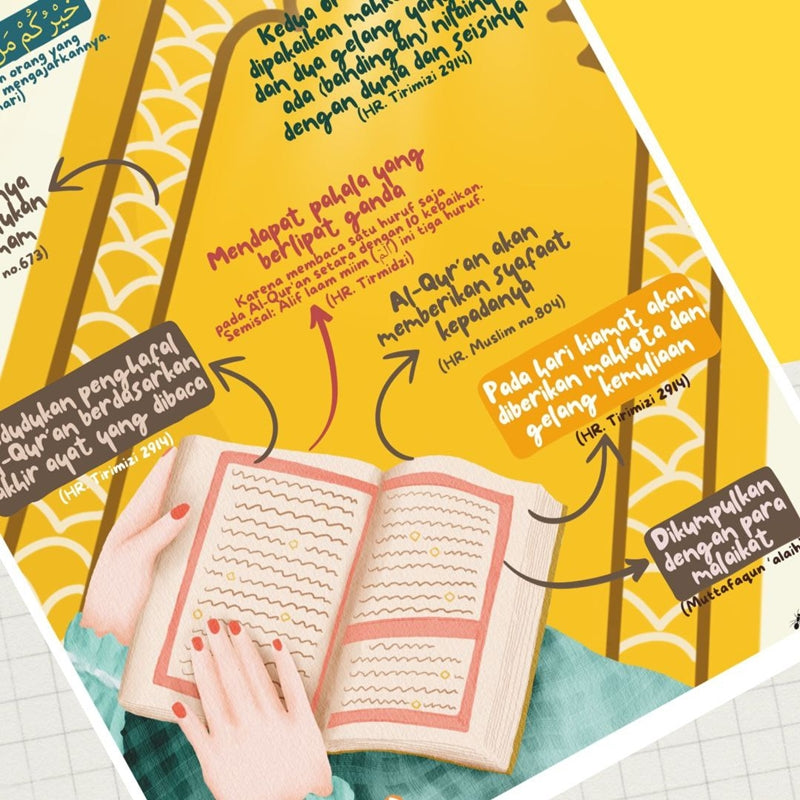 خَيْرُكُمْ مَنْ
orang yang
mengajarkannya.
Kedua
dipakaikan
dan dua gelang yang
ada (bandingan) nilainya
dengan dunia dan seisinya
(HR. Tirimizi 2914)
no.673)
Mendapat pahala yang
berlipat ganda
Karena membaca satu huruf saja
pada Al-Qur'an setara dengan 10 kebaikan.
Semisal: Alif laam miim (الم) ini tiga huruf.
(HR. Tirmidzi)
Al-Qur'an akan
memberikan syafaat
kepadanya
(HR. Muslim no.804)
Pada hari kiamat akan
diberikan mahkota dan
gelang kemuliaan
(HR. Tirimizi 2914)
dudukan penghafal
-Qur'an berdasarkan
akhir ayat yang dibaca
(HR. Tirimizi 2914)
Dikumpulkan
dengan para
malaikat
(Muttafaqun 'alaih